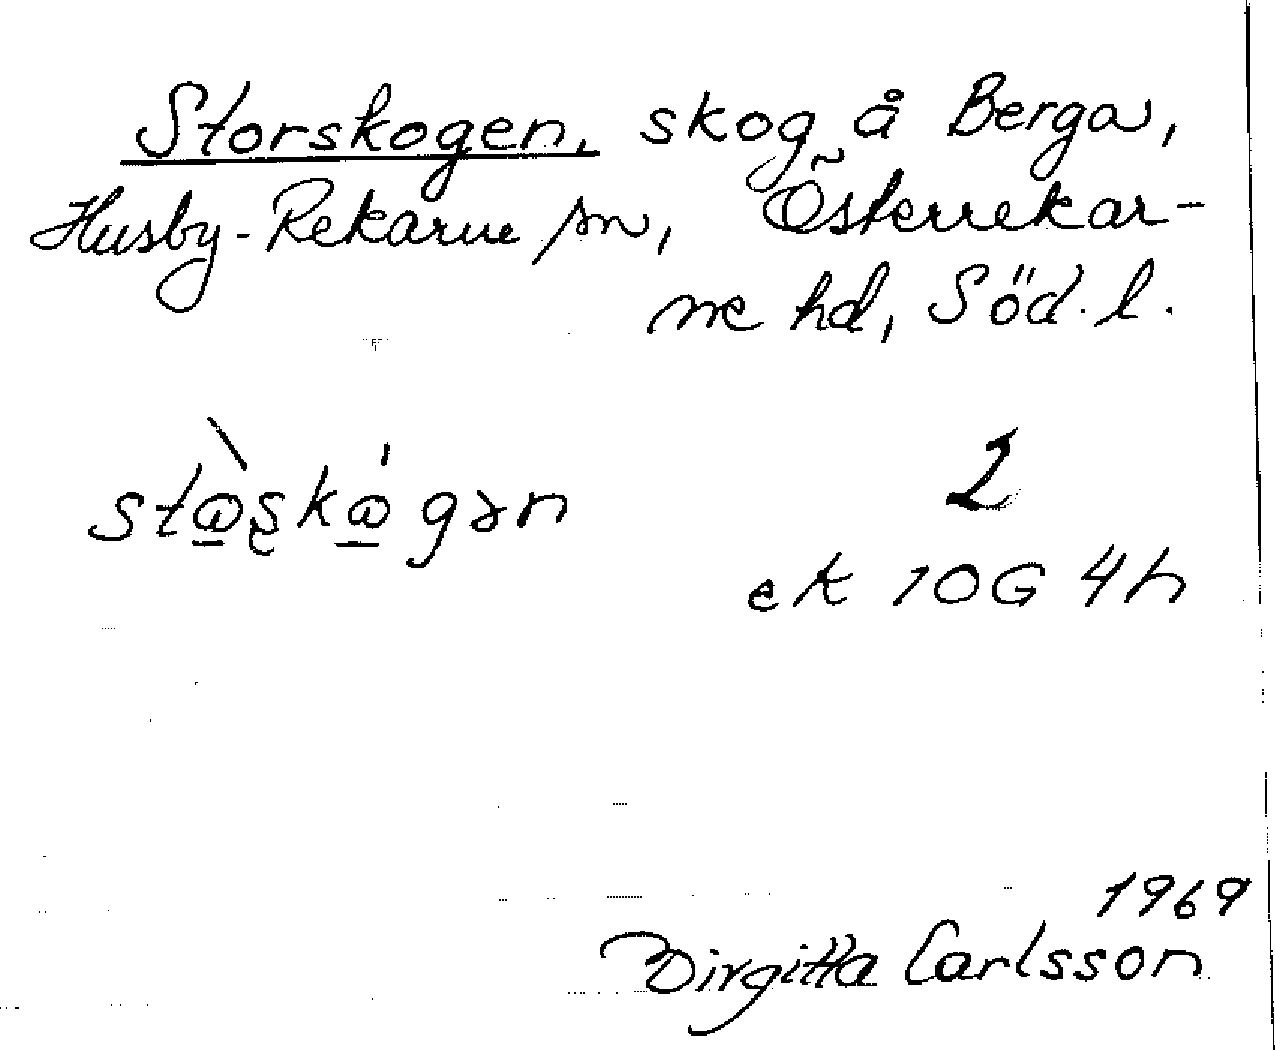 Storskogen, skog å Berga,
Husby-Rekarne sn, Österrekar-
ne hd, Söd. l.
stὼ̲ʂkώ̲gən
2
ek 10G 4h
1969
Birgitta Carlsson